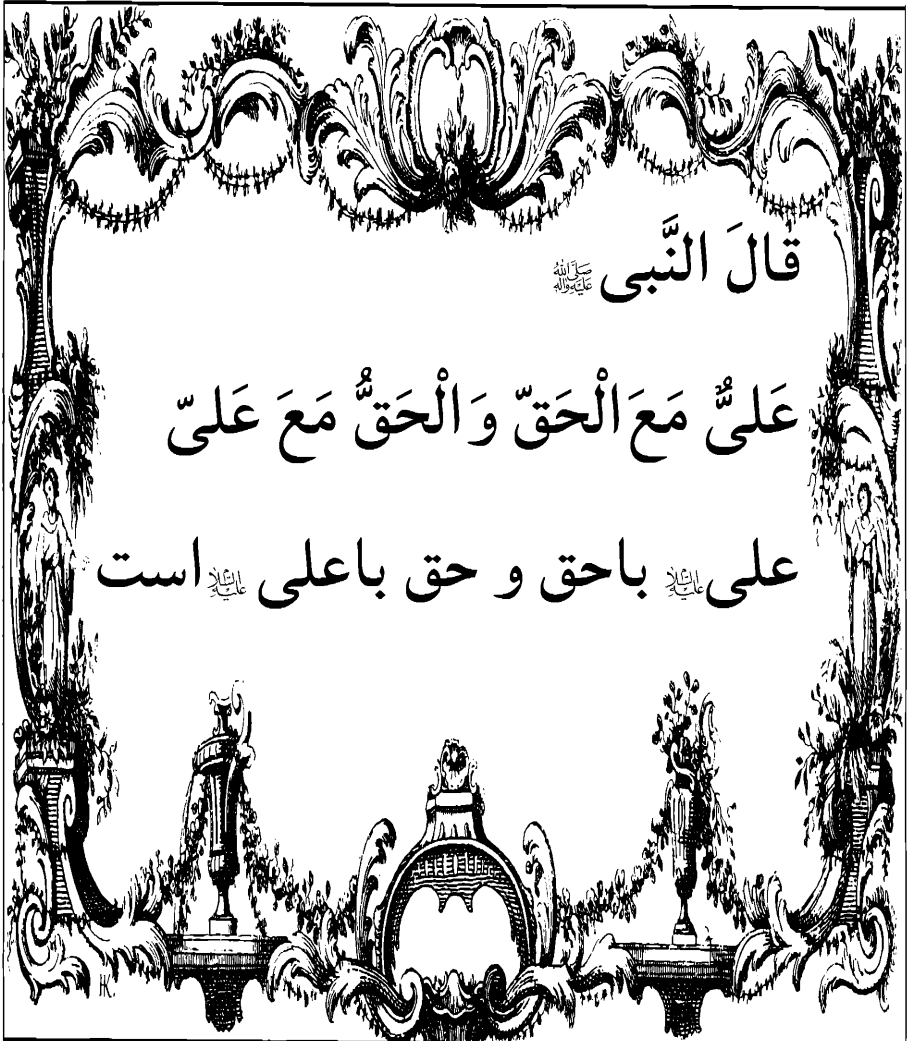 قالَ النَّبی صَلَّى اللهُ عَلَيْهِ وَآلِهِ
عَلیٌّ مَعَ الْحَقّ وَ الْحَقُّ مَعَ عَلیّ
علی علیه‌السلام باحق و حق باعلی علیه‌السلام است
HK.